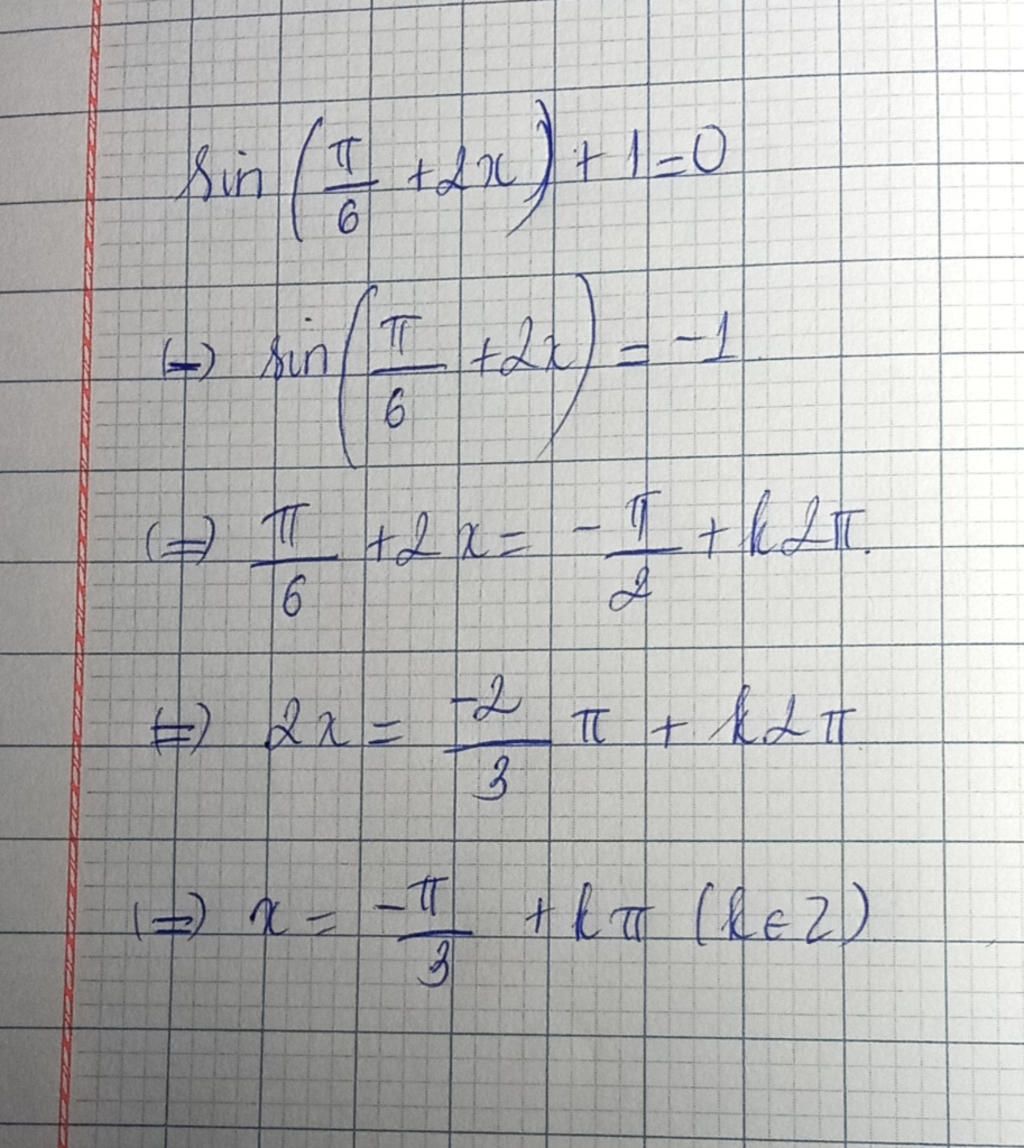 sin(π/6 + 2x) + 1 = 0
(=) sin(π/6 + 2x) = -1
(=) π/6 + 2x = -π/2 + k2π.
(=) 2x = -2/3 π + k2π
(=) x = -π/3 + kπ (k ∈ Z)